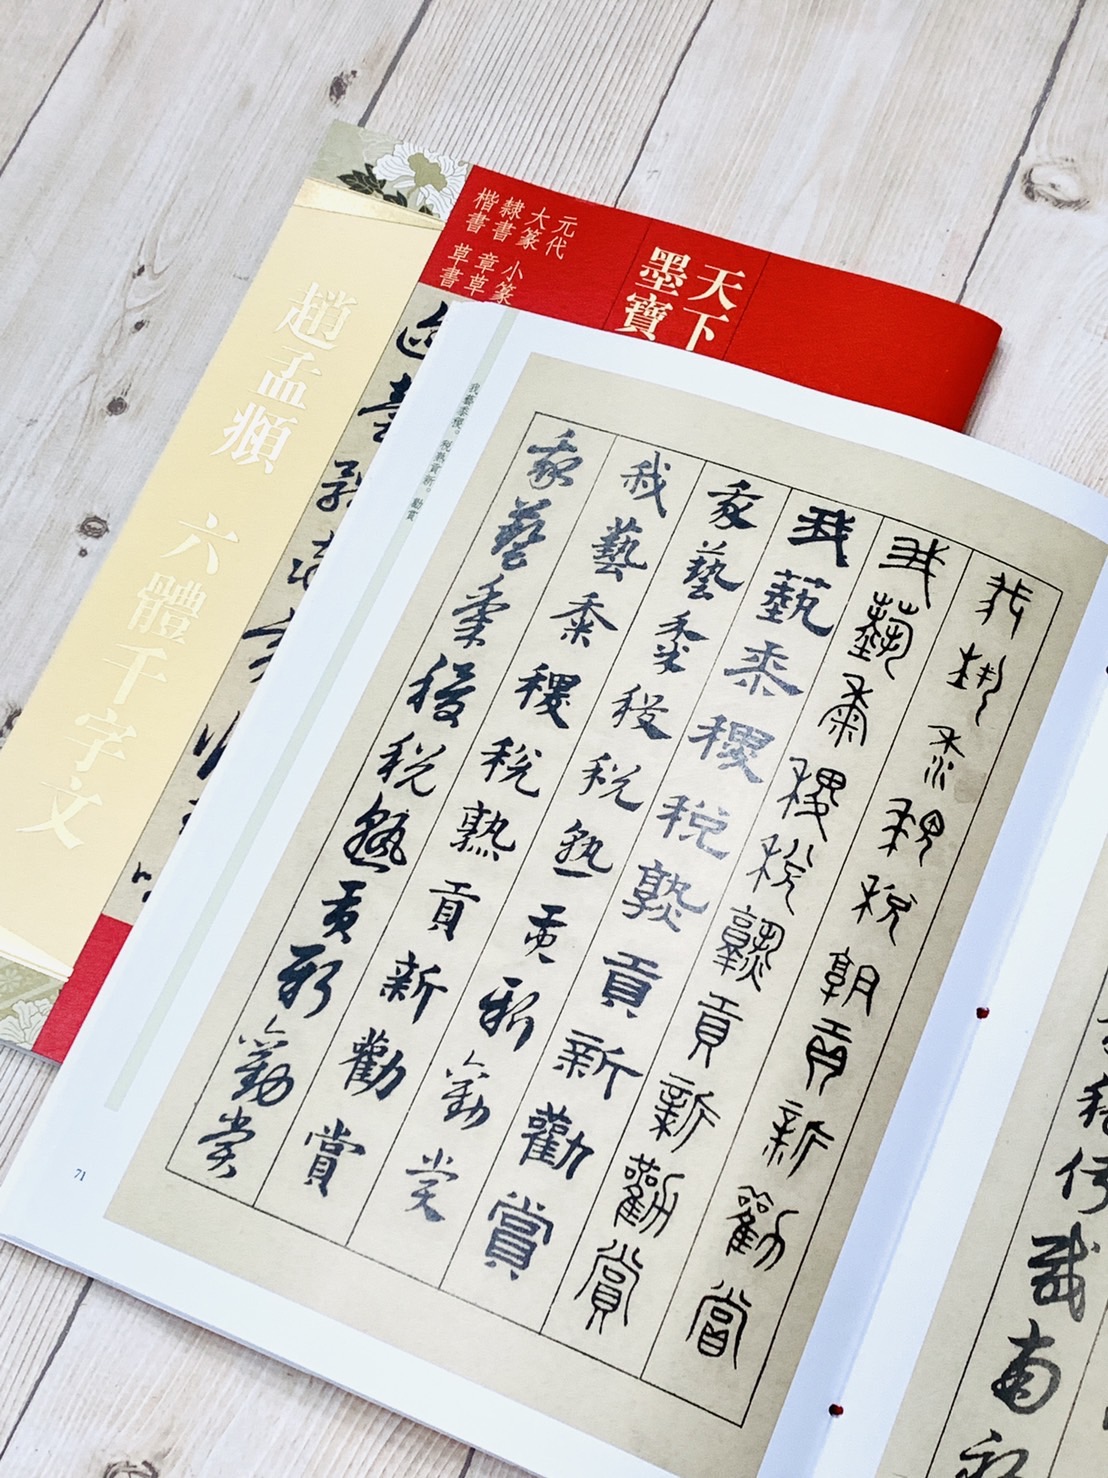 元代
大篆 小篆
隸書 章草
楷書 草書
天下
墨寶
趙孟頫 六體千字文
俶載南
我藝黍稷稅熟貢新勸賞
我藝黍稷稅熟貢新勸賞
我藝黍稷稅熟貢新勸賞
我藝黍稷稅熟貢新勸賞
我藝黍稷稅熟貢新勸賞
我藝黍稷稅熟貢新勸賞
我藝黍稷。稅熟貢新。勸賞
71